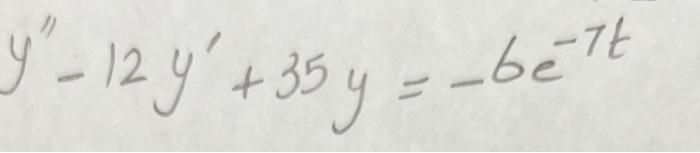 y'' - 12y' + 35y = -6e^{-7t}